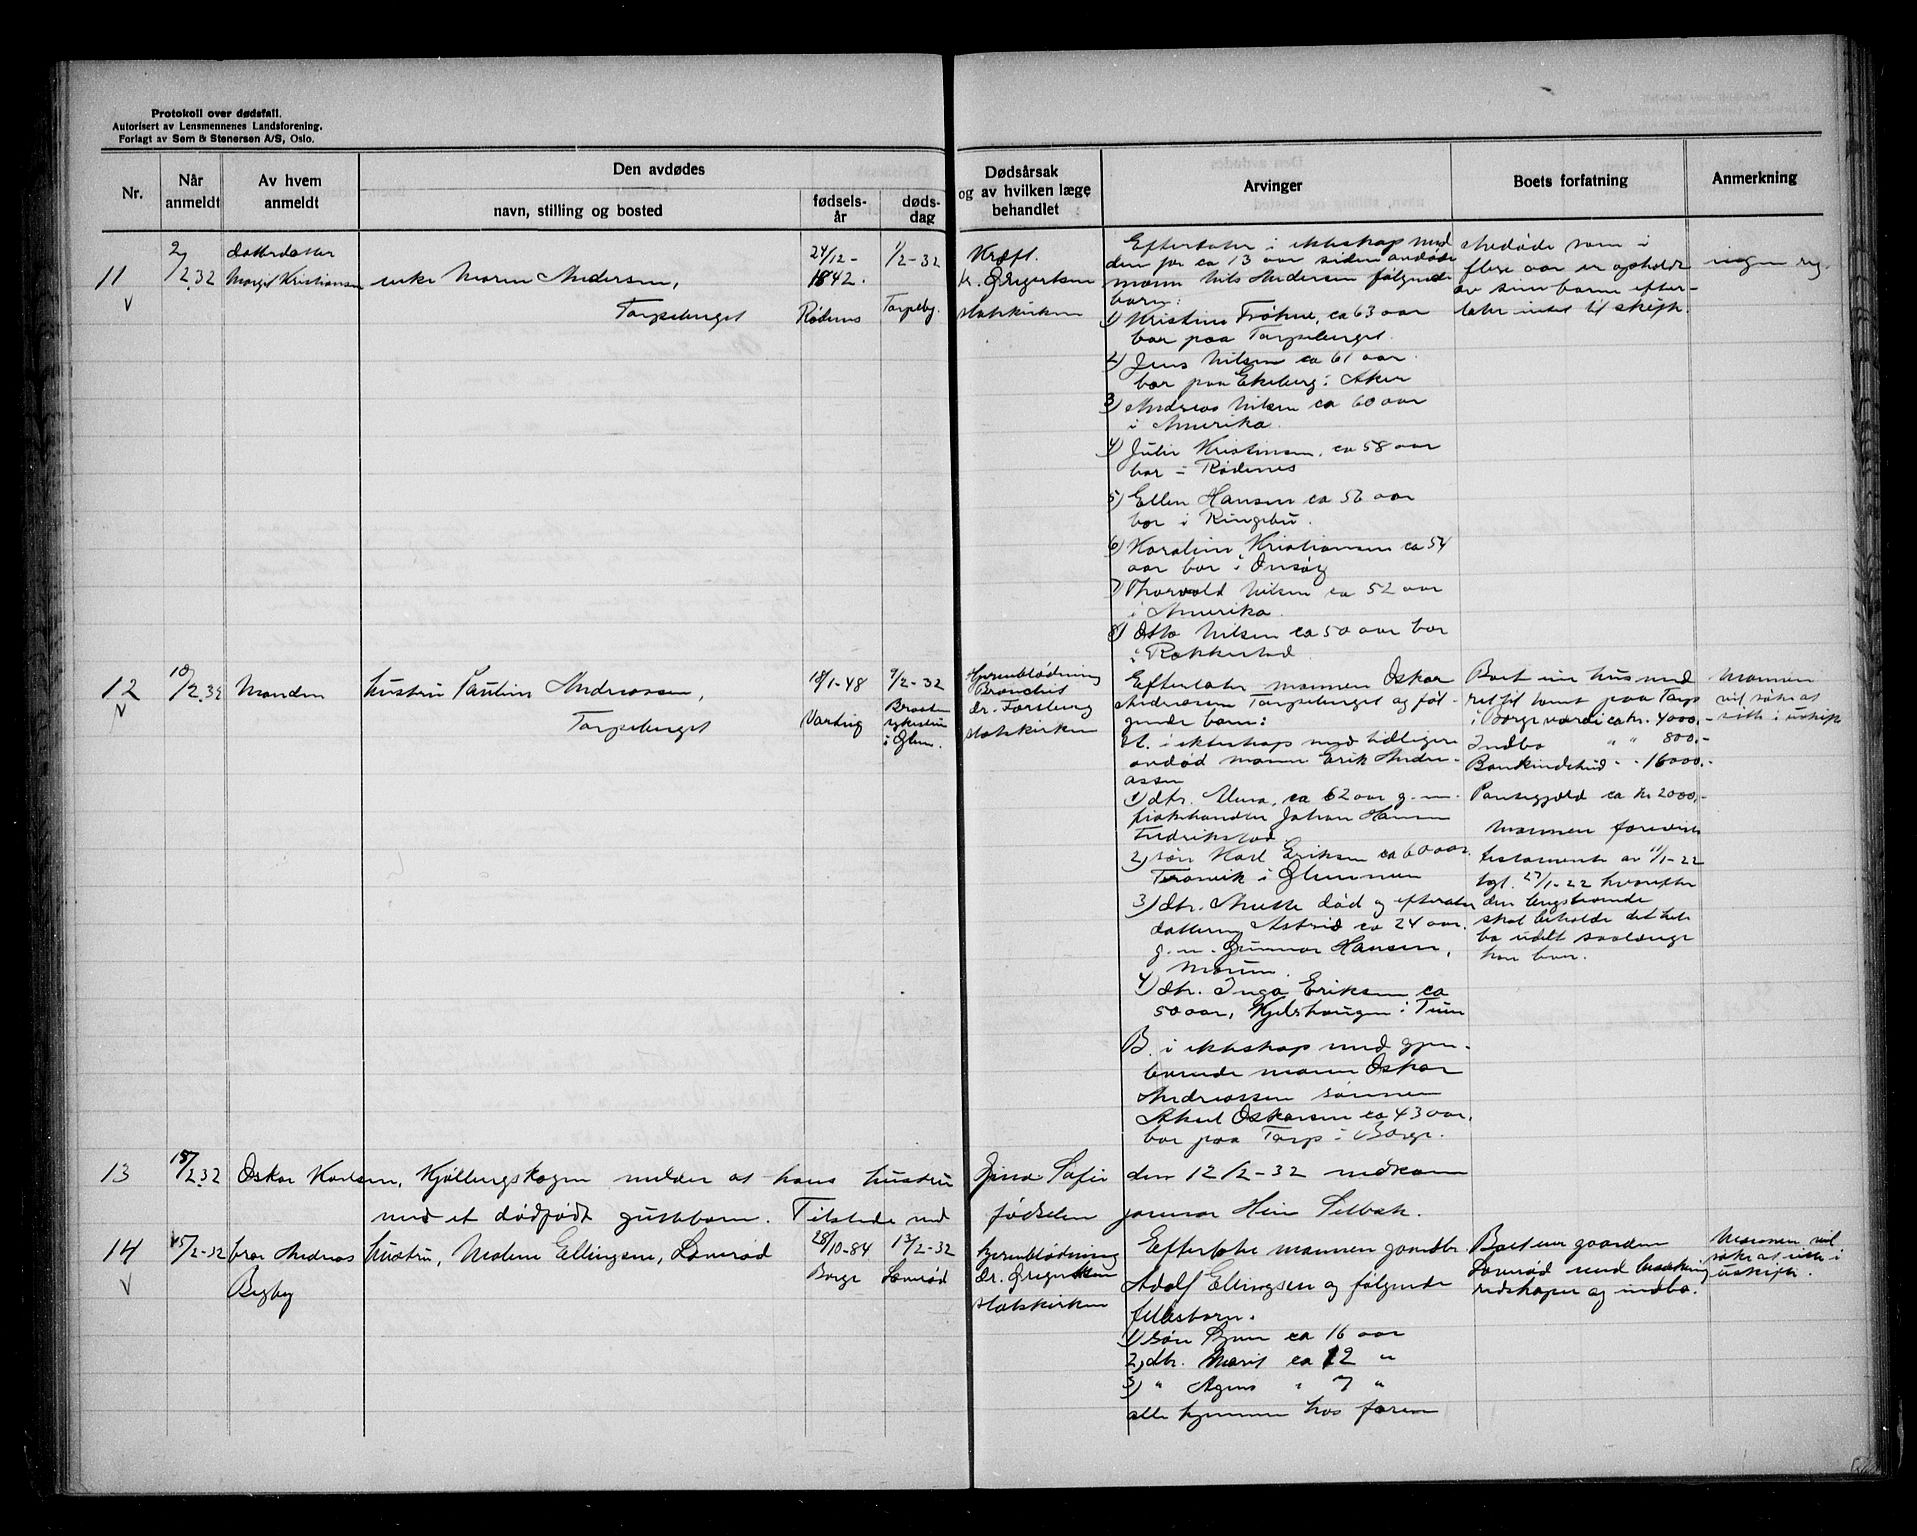 Protokoll over dødsfall.
Autorisert av Lensmennenes Landsforening.
Forlagt av Sem & Stenersen A/S, Oslo.
Nr.
Når anmeldt
Av hvem anmeldt
Den avdødes
navn, stilling og bosted
fødsels-år
døds-dag
Dødsårsak og av hvilken læge behandlet
Arvinger
Boets forfatning
Anmerkning
11
2/2.32
datterdatter
Margit Kristiansen
enke Maren Andersen,
Torpeberget
24/12-
1842.
Rødenes
1/2-32
Torpebg.
Kræft.
dr. Gregertsen
statskirken
Efterlater i ekteskap med
den for ca 13 aar siden avdøde
mann Nils Andersen følgende
barn:
1) Kristine Frøhne, ca 63 aar
bor paa Torpeberget.
2) Jens Nilsen ca 61 aar.
bor paa Ekeberg i Aker
3) Andreas Nilsen ca 60 aar
i Amerika.
4) Julie Kristiansen, ca 58 aar
bor i Rødenes
5) Ellen Hansen ca 56 aar
bor i Ringebu.
6) Karoline Kristiansen ca 54
aar bor i Onsøy
7) Thorvald Nilsen ca 52 aar
i Amerika.
8) Otto Nilsen ca 50 aar bor
i Rakkestad
Avdøde som i
flere aar er opholdt
av sine barn efter-
later intet til skifte.
ingen reg.
12
10/2.32
Manden
hustru Pauline Andreassen,
Torpeberget
18/1-48
Varteig
9/2-32
sykehus
i Glem.
Hjerneblødning
Bronchit
dr. Forsberg
statskirken
Efterlater mannen Oskar
Andreassen Torpeberget og føl-
gende barn:
A. i ekteskap med tidligere
avdød mann Erik Andre-
assen
1) dtr. Alma, ca 62 aar g.m.
fiskehandler Johan Hansen
Fredrikstad.
2) søn Karl Eriksen ca 60 aar.
i Glemmen
3) dtr. Anette død og efterlater
datteren Astrid ca 24 aar.
g.m. Gunnar Hansen,
Moum.
4) dtr. Inga Eriksen ca
50 aar, Kjelshaugen i Tune
B. i ekteskap med gjen-
levende mann Oskar
Andreassen sønnen
Aksel Oskarsen ca 43 aar.
bor paa Torp i Borge.
Boet eier hus med
ret til tomt paa Torp
i Borge værdi ca kr. 4000,-
Indbo " " 800.-
Bankindskud " " 16000.-
Pantegjæld ca kr 2000,-
Mannen foreviste
testamente av 11/1-22
tgl. 27/1-22 hvorefter
den lengstlevende
skal beholde det hele
bo udelt saalænge
han lever.
Mannen
vil søke at
sitte i uskifte
13
15/2.32
Oskar Karlsen, Kjølbergskogen melder at hans hustru Gina Sofie den 12/2-32 nedkom
med et dødfødt guttebarn. Tilstede ved fødselen jormor Selbak.
14
15/2-32
bror Andreas
Begby
hustru, Malene Ellingsen, Lomrød
28/10-84
Borge
13/2-32
Lomrød
Hjerneblødning
dr. Gregertsen
statskirken
Efterlater mannen gaardbr
Adolf Ellingsen og følgende
fellesbarn.
1) søn ca 16 aar
2) dtr. Marit ca 12 "
3) " Agnes " 7 "
alle hjemme hos faren
Boet eier gaarden
Lomrød med besætning
redskaper og indbo.
Mannen vil
søke at sitte i
uskifte.